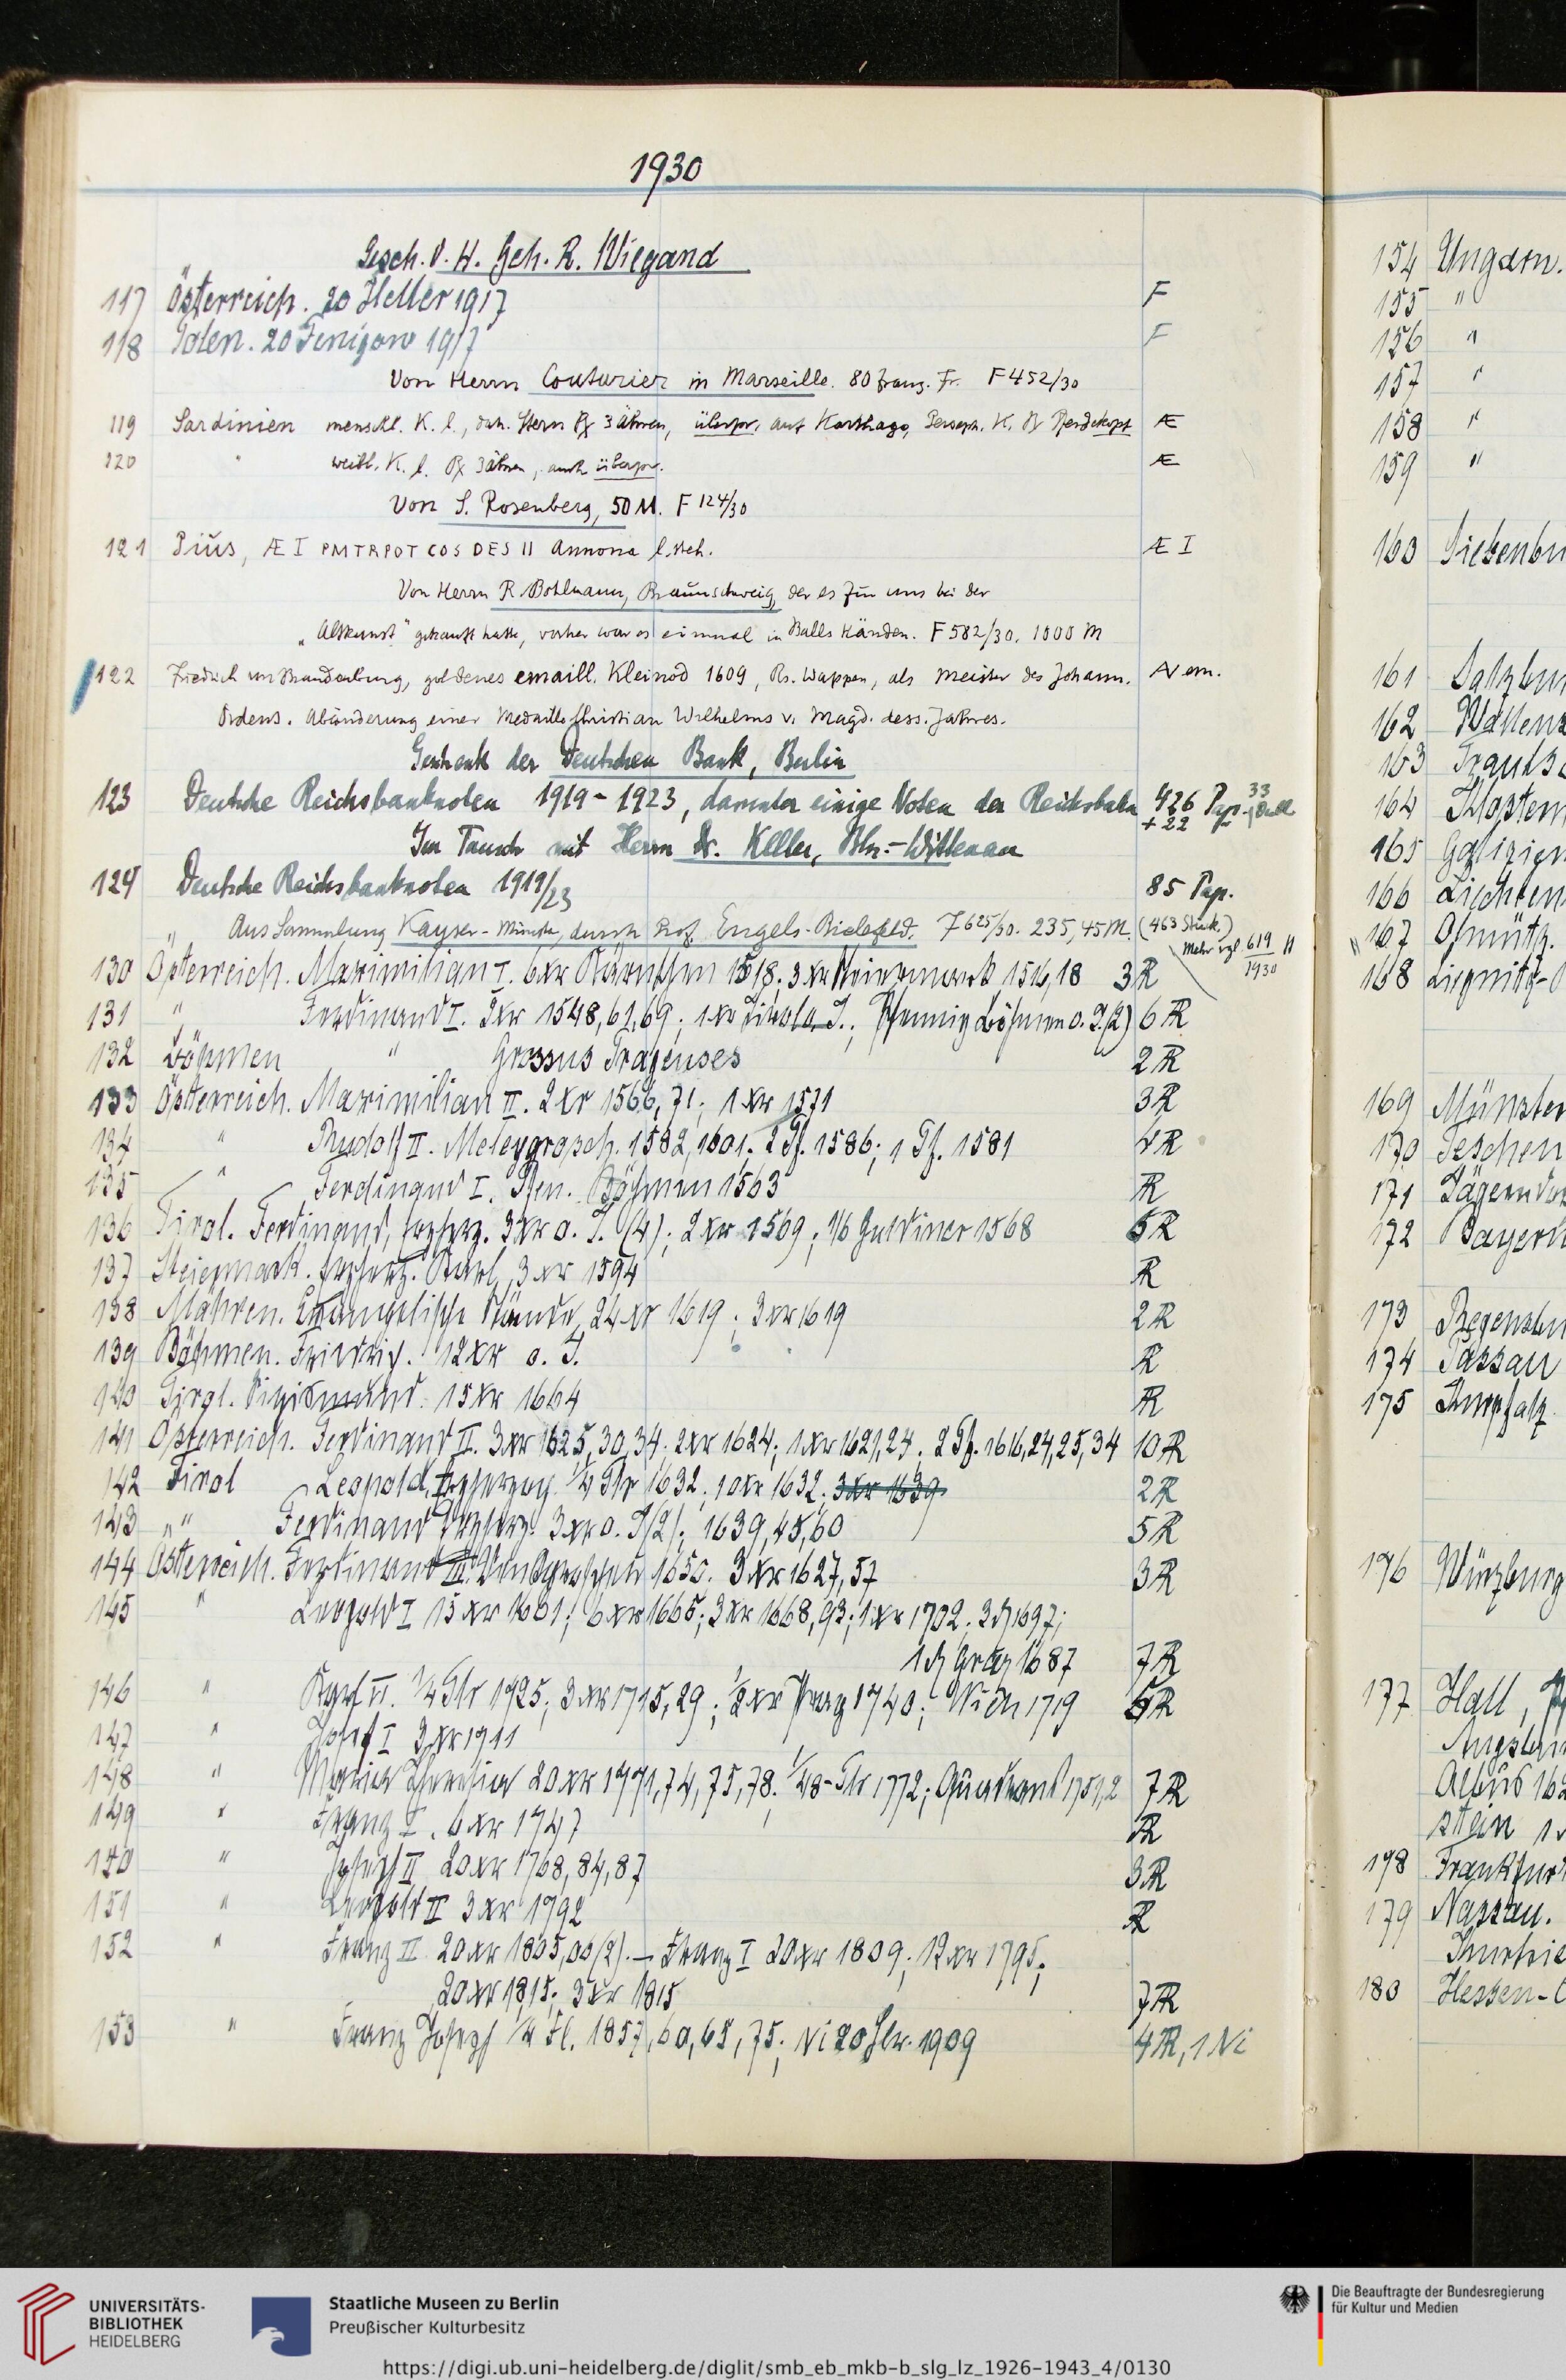 1930
Gesch. v. H. Geh. R. Wiegand
117 Österreich. 20 Heller 1917 F
118 Polen. 20 Fenigow 1917 F
Von Herrn Couturier in Marseille. 80 franz. Fr. F 452/30
119 Sardinien menschl. K. l., dah. Stern Rx 3 Ähren, überpr. auf Karthago, Perseph. K. Rx Pferdekopf Æ
120 " weibl. K. l. Rx 3 Ähren, auch überpr. Æ
Von S. Rosenberg, 50 M. F 124/30
121 Pius, Æ I PMTRPOT COS DES II Annona l. steh. Æ I
Von Herrn R. Bohlmann, Braunschweig, der es für uns bei der
„Altkunst" gekauft hatte, vorher war es einmal in Balls Händen. F 582/30. 1000 M
122 Friedrich von Brandenburg, goldenes emaill. Kleinod 1609, Rs. Wappen, als Meister des Johann. AV em.
Ordens. Abänderung einer Medaille Christian Wilhelms v. Magd. dess. Jahres.
Geschenk der Deutschen Bank, Berlin
123 Deutsche Reichsbanknoten 1919-1923, darunter einige Noten der Reichsbahn 426 Pap. 33
+ 22
Im Tausch mit Herrn Dr. Keller, Bln.-Wittenau
124 Deutsche Reichsbanknoten 1919/23 85 Pap.
Aus Sammlung Kayser-Münster, durch Prof. Engels-Bielefeld. F 625/30. 235,45 M. (463 Stück.)
Mehr vgl. 619/1930
130 Österreich. Maximilian I. 6 xr Kärnthen 1518; 3 xr Steiermark 1516, 18 3 R
131 " Ferdinand I. 2 xr 1548, 61, 69; 1 xr Tirol o. J.; Pfennig Böhmen o. J. (2) 6 R
132 Böhmen " Grossus Pragenses 2 R
133 Österreich. Maximilian II. 2 xr 1566, 71; 1 xr 1571 3 R
134 " Rudolf II. Maleygrosch. 1582, 1601; 2 Pf. 1586; 1 Pf. 1581 4 R
135 " Ferdinand I. Pfen. Böhmen 1563 R
136 Tirol. Ferdinand, Erzherz. 3 xr o. J. (4); 2 xr 1569; 1/6 Guldiner 1568 6 R
137 Steiermark. Erzherz. Karl, 3 xr 1594 R
138 Mähren. Evangelische Stände, 24 xr 1619; 3 xr 1619 2 R
139 Böhmen. Friedrich. 12 xr o. J. R
140 Tirol. Sigismund. 15 xr 1664 R
141 Österreich. Ferdinand II. 3 xr 1625, 30, 34; 2 xr 1624; 1 xr 1621, 24; 2 Pf. 1616, 24, 25, 34 10 R
142 Tirol Leopold, Erzherzog 1/4 Tlr 1632; 10 xr 1632; 3 xr 1639 2 R
143 " Ferdinand Erzherz. 3 xr o. J. (2); 1639, 45, 60 5 R
144 Österreich. Ferdinand III. Groschen 1650; 3 xr 1627, 57 3 R
145 " Leopold I 15 xr 1661; 6 xr 1665; 3 xr 1668, 93; 1 xr 1702; 3 ₰ 1697;
1 ₰ Graz 1687 7 R
146 " Karl VI. 1/4 Tlr 1725; 3 xr 1715, 29; 1/2 xr Prag 1740; Wien 1719 5 R
147 " Josef I 3 xr 1711
148 " Maria Theresia 20 xr 1771, 74, 75, 78; 1/48-Tlr 1772; Quadrant 1751, 2 7 R
149 " Franz I. 6 xr 1747 R
150 " Joseph II 20 xr 1768, 84, 87 3 R
151 " Leopold II 3 xr 1792 R
152 " Franz II 20 xr 1805, 06 (2). – Franz I 20 xr 1809; 12 xr 1795;
20 xr 1815; 3 xr 1815 7 R
153 " Franz Joseph 1/4 Fl. 1857, 60, 65, 75; Ni 20 Hlr. 1909 4 R, 1 Ni
154 Ungarn.
155 "
156 "
157 "
158 "
159 "
160 Siebenbü
161 Salzbur
162 Wallens
163 Trauts
164 Kloster
165 Galizien
166 Liechten
167 Olmütz.
168 Liegnitz-
169 Münster
170 Teschen
171 Jägerndo
172 Bayern
173 Regensbu
174 Passau
175 Kurpfalz
176 Würzburg
177 Hall,
Augsbu
Albus 162
stein 1
178 Frankfurt
179 Nassau.
180 Hessen-C
UNIVERSITÄTS-
BIBLIOTHEK
HEIDELBERG
Staatliche Museen zu Berlin
Preußischer Kulturbesitz
Die Beauftragte der Bundesregierung
für Kultur und Medien
https://digi.ub.uni-heidelberg.de/diglit/smb_eb_mkb-b_slg_lz_1926-1943_4/0130